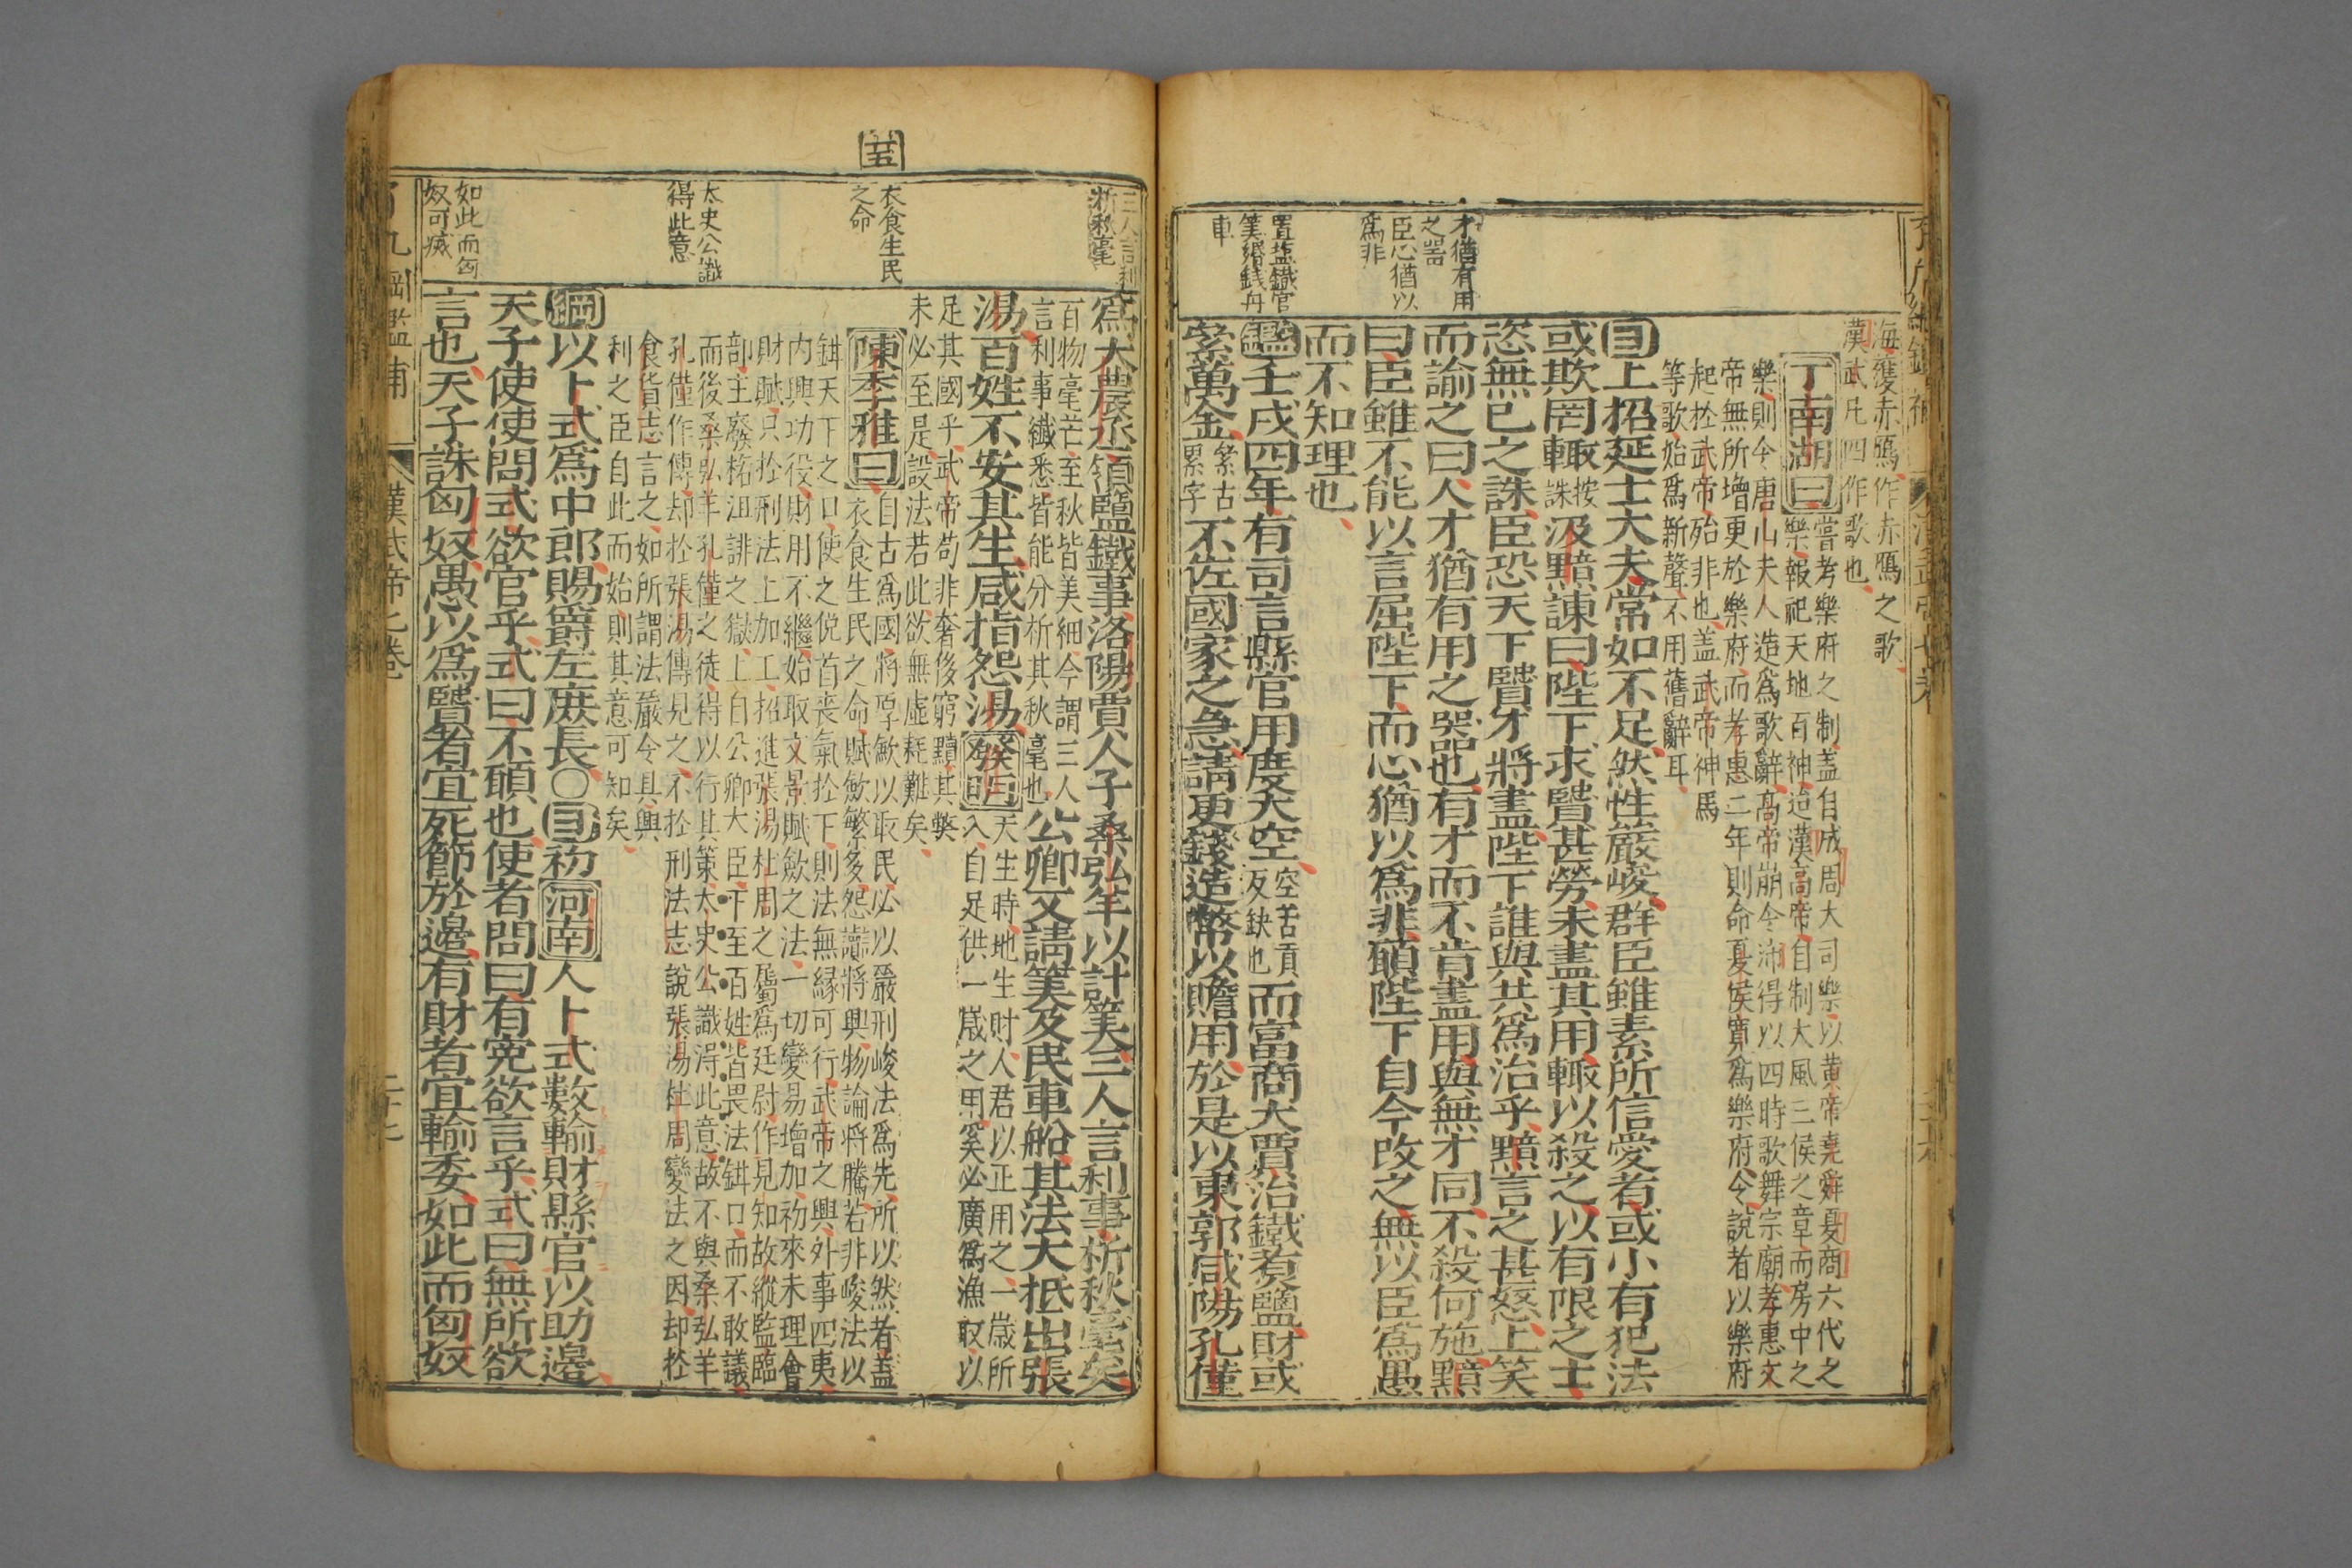 海獲赤鴈作赤鴈之歌
漢武凡四作歌也
丁南湖曰嘗考樂府之制盖自成周大司樂以黄帝堯舜夏商六代之
樂報祀天地百神迨漢高帝自制大風三侯之章而房中之
樂則令唐山夫人造爲歌辭高帝崩令沛得以四時歌舞宗廟孝惠文
帝無所增更於樂府而孝惠二年則命夏侯寛爲樂府令說者以樂府
起於武帝殆非也盖武帝神馬
等歌始爲新聲不用舊辭耳
目上招延士大夫常如不足然性嚴峻群臣雖素所信愛者或小有犯法
或欺罔輙按誅汲黯諫曰陛下求賢甚勞未盡其用輙以殺之以有限之士
恣無已之誅臣恐天下賢才將盡陛下誰與共爲治乎黯言之甚怒上笑
而諭之曰人才猶有用之器也有才而不肯盡用與無才同不殺何施黯
曰臣雖不能以言屈陛下而心猶以爲非願陛下自今改之無以臣爲愚
而不知理也
才猶有用
之器
臣心猶以
爲非
鑑壬戌四年有司言縣官用度大空空苦貢反缺也而富商大賈冶鐵煑鹽財或
絫萬金絫古累字不佐國家之急請更錢造幣以贍用於是以東郭咸陽孔僅
置塩鐵官
筭緡錢舟
車
爲大農丞領鹽鐵事洛陽賈人子桑弘羊以計筭三人言利事析秋毫矣
三人言利
析秋毫
百物毫芒至秋皆美細今謂三人
言利事纖悉皆能分析其秋毫也
公卿又請筭及民車船其法大抵出張
湯百姓不安其生咸指怨湯發明天生時地生財人君以正用之一歲所
入自足供一歲之用奚必廣爲漁取以
足其國乎武帝苟非奢後窮黷其弊
未必至是設法若此欲無虛耗難矣
陳季雅曰自古爲國將厚斂以取民必以嚴刑峻法爲先所以然者盖
衣食生民之命賦斂繁多怨讟將興物論將騰若非峻法以
衣食生民
之命
鉗天下之口使之俛首喪氣於下則法無緣可行武帝之興外事四夷
内興功役財用不繼始取文景賦斂之法一切變易增加初來未理會
財賦只於刑法上加工招進張湯杜周之屬爲廷尉作見知故縱監臨
部主廢格沮誹之獄上自公卿大臣下至百姓皆畏法鉗口而不敢議
而後桑弘羊孔僅之徒得以行其策太史公識得此意故不與桑弘羊
孔僅作傳却於張湯傳見之不於刑法志說張湯杜周變法之因却於
太史公識
得此意
食貨志言之如所謂法嚴令具興
利之臣自此而始則其意可知矣
綱以卜式爲中郎賜爵左庶長〇目初河南人卜式數輸財縣官以助邊
天子使使問式欲官乎式曰不願也使者問曰有寃欲言乎式曰無所欲
言也天子誅匈奴愚以爲賢者宜死節於邊有財者宜輸委如此而匈奴
如此而匈
奴可滅
漢武帝七卷
二十七
廿五